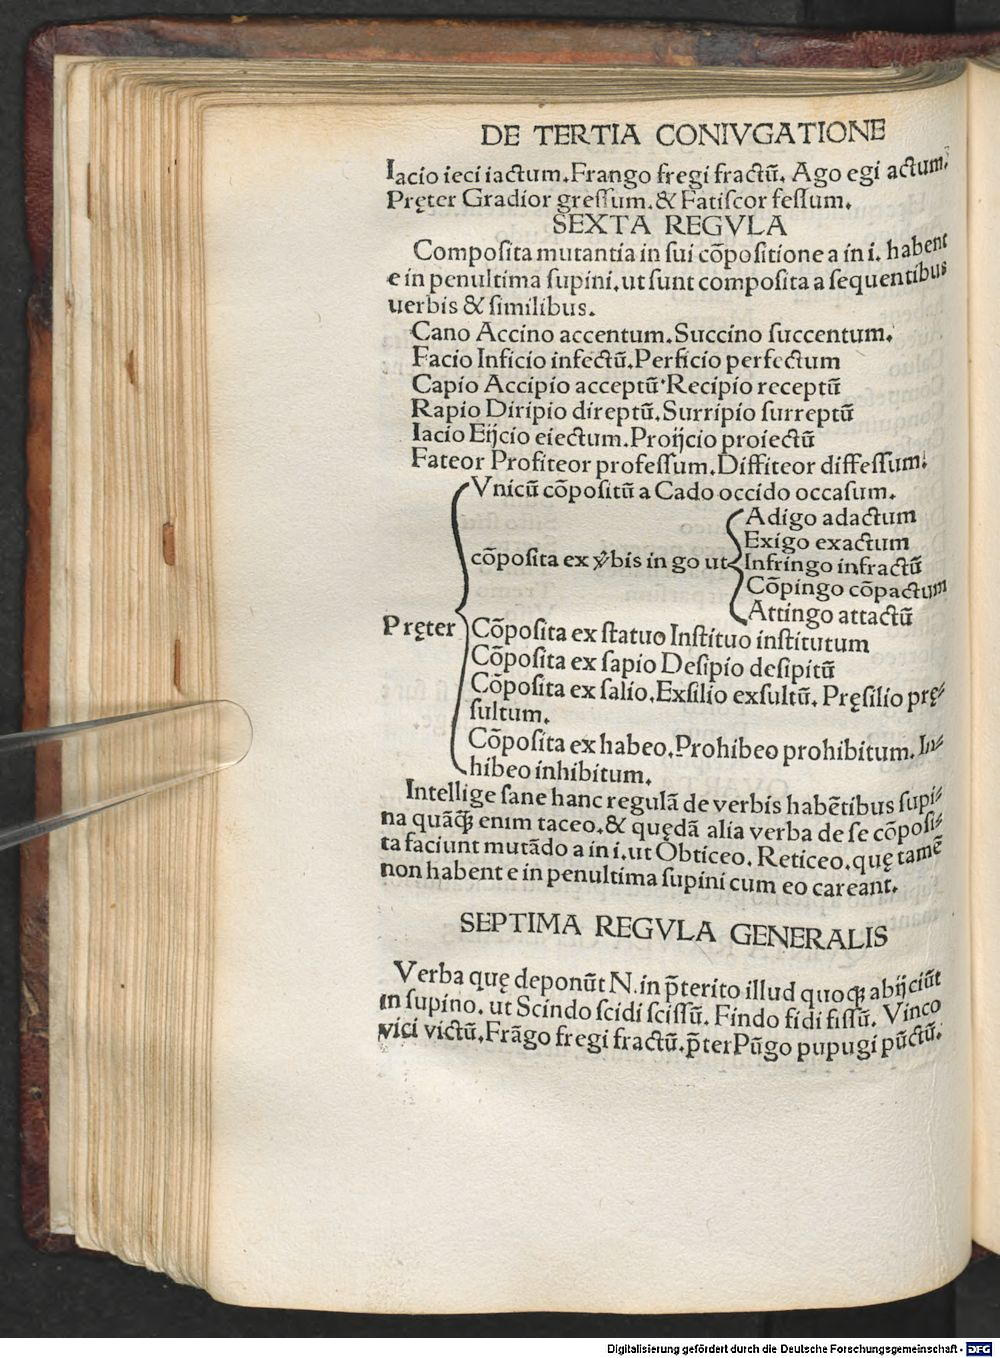 DE TERTIA CONIVGATIONE
Iacio ieci iactum. Frango fregi fractũ. Ago egi actum.
Pręter Gradior greſſum. & Fatiſcor feſſum.
SEXTA REGVLA
Compoſita mutantia in ſui cõpoſitione a in i. habent
e in penultima ſupini. ut ſunt compoſita a ſequentibus
uerbis & ſimilibus.
Cano Accino accentum. Succino ſuccentum.
Facio Inficio infectũ. Perficio perfectum
Capio Accipio acceptũ. Recipio receptũ
Rapio Diripio direptũ. Surripio ſurreptũ
Iacio Eijcio eiectum. Proijcio proiectũ
Fateor Profiteor profeſſum. Diffiteor diffeſſum.
Vnicũ cõpoſitũ a Cado occido occaſum.
cõposita ex v̾bis in go ut
Adigo adactum
Exigo exactum
Infringo infractũ
Cõpingo cõpactum
Attingo attactũ
Pręter
Cõpoſita ex ſtatuo Inſtituo inſtitutum
Cõpoſita ex ſapio Deſipio deſipitũ
Cõpoſita ex ſalio. Exſilio exſultũ. Pręſilio prę⸗
ſultum.
Cõpoſita ex habeo. Prohibeo prohibitum. In⸗
hibeo inhibitum.
Intellige ſane hanc regulã de verbis habẽtibus ſupi⸗
na quãꝙ̃ enim taceo. & quędã alia verba de ſe cõpoſi⸗
ta faciunt mutãdo a in i. ut Obticeo. Reticeo. quę tamẽ
non habent e in penultima ſupini cum eo careant.
SEPTIMA REGVLA GENERALIS
Verba quę deponũt N. in p̃terito illud quoqꝫ abijciũt
in ſupino. ut Scindo ſcidi ſciſſũ. Findo fidi fiſſũ. Vinco
vici victũ. Frãgo fregi fractũ. p̃ter Pũgo pupugi pũctũ.
Digitalisierung gefördert durch die Deutsche Forschungsgemeinschaft - DFG